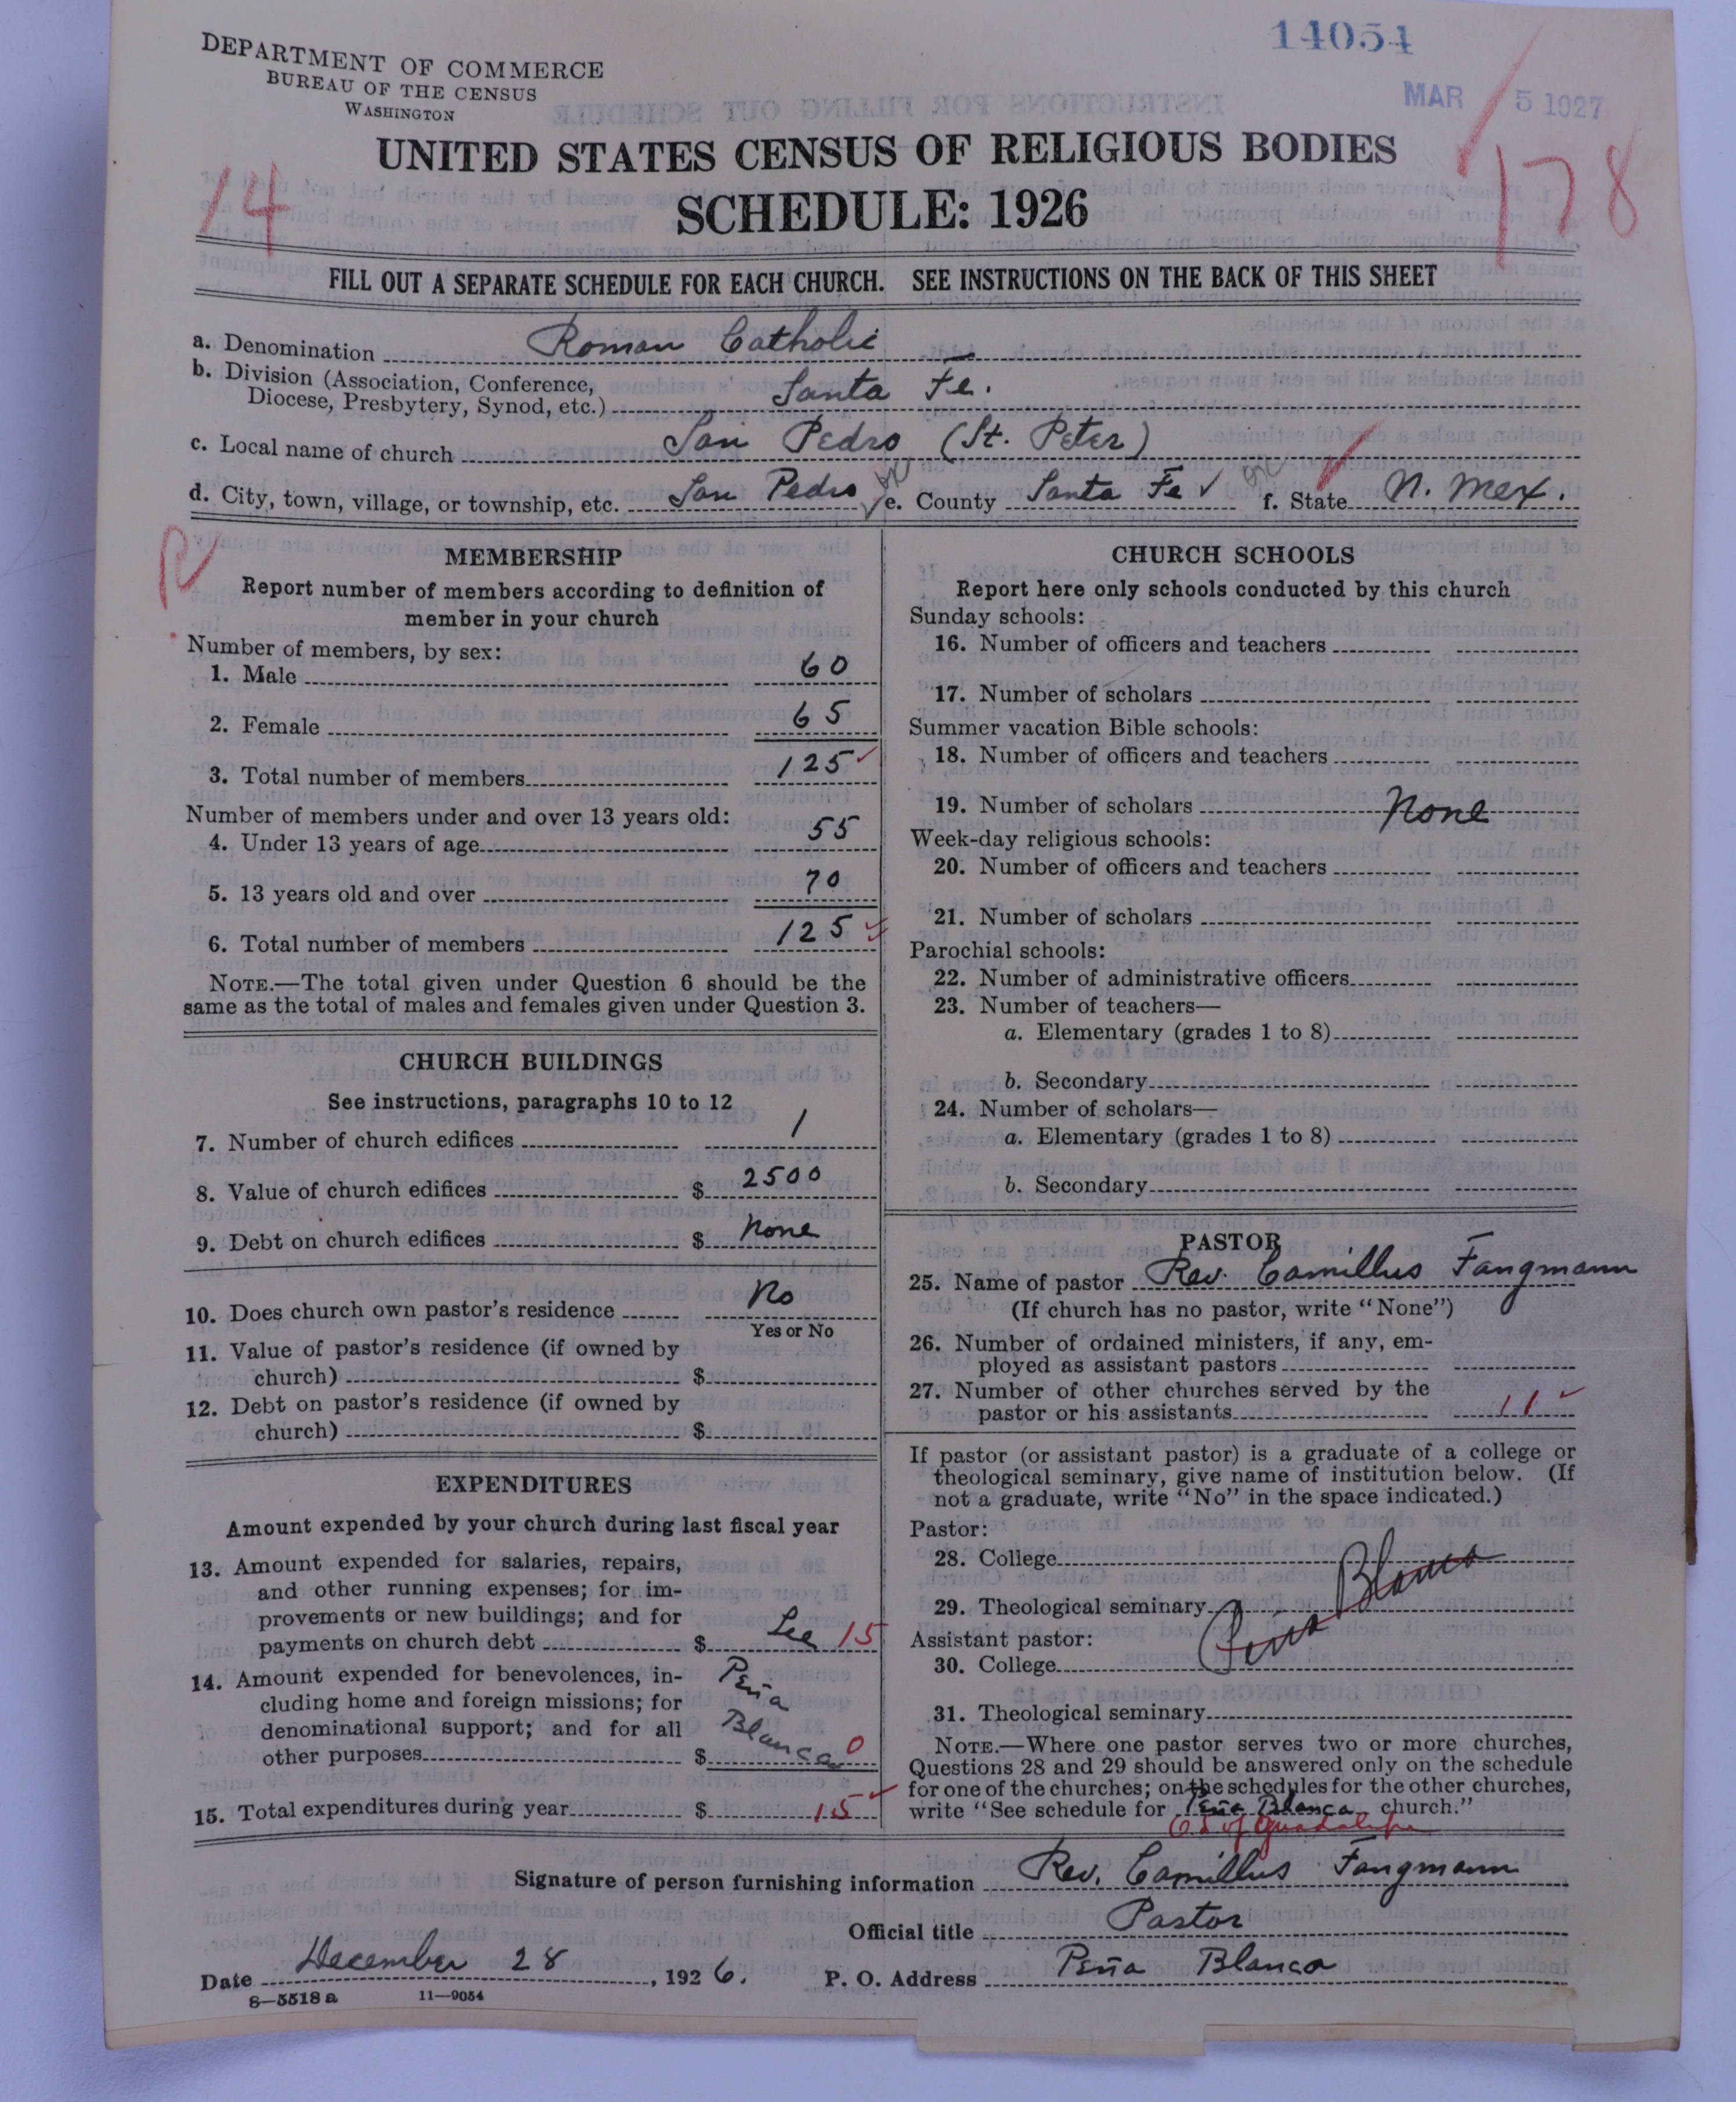 14054
DEPARTMENT OF COMMERCE
BUREAU OF THE CENSUS
WASHINGTON
MAR 5 1927
UNITED STATES CENSUS OF RELIGIOUS BODIES
SCHEDULE: 1926
14
178
FILL OUT A SEPARATE SCHEDULE FOR EACH CHURCH. SEE INSTRUCTIONS ON THE BACK OF THIS SHEET
a. Denomination Roman Catholic
b. Division (Association, Conference,
Diocese, Presbytery, Synod, etc.) Santa Fe.
c. Local name of church San Pedro (St. Peter)
d. City, town, village, or township, etc. San Pedro e. County Santa Fe ✓ f. State N. Mex.
R
MEMBERSHIP
Report number of members according to definition of
member in your church
Number of members, by sex:
1. Male 60
2. Female 65
3. Total number of members 125 ✓
Number of members under and over 13 years old:
4. Under 13 years of age 55
5. 13 years old and over 70
6. Total number of members 125 ✓
NOTE.—The total given under Question 6 should be the
same as the total of males and females given under Question 3.
CHURCH BUILDINGS
See instructions, paragraphs 10 to 12
7. Number of church edifices 1
8. Value of church edifices $ 2500
9. Debt on church edifices $ None
10. Does church own pastor's residence No
Yes or No
11. Value of pastor's residence (if owned by
church) $
12. Debt on pastor's residence (if owned by
church) $
EXPENDITURES
Amount expended by your church during last fiscal year
13. Amount expended for salaries, repairs,
and other running expenses; for im-
provements or new buildings; and for
payments on church debt $ See 15
14. Amount expended for benevolences, in- Peña
cluding home and foreign missions; for
denominational support; and for all Blanca
other purposes $ 0
15. Total expenditures during year $ 15 ✓
CHURCH SCHOOLS
Report here only schools conducted by this church
Sunday schools:
16. Number of officers and teachers
17. Number of scholars
Summer vacation Bible schools:
18. Number of officers and teachers
19. Number of scholars None
Week-day religious schools:
20. Number of officers and teachers
21. Number of scholars
Parochial schools:
22. Number of administrative officers
23. Number of teachers—
a. Elementary (grades 1 to 8)
b. Secondary
24. Number of scholars—
a. Elementary (grades 1 to 8)
b. Secondary
PASTOR
25. Name of pastor Rev. Camillus Fangmann
(If church has no pastor, write "None")
26. Number of ordained ministers, if any, em-
ployed as assistant pastors
27. Number of other churches served by the
pastor or his assistants 11 ✓
If pastor (or assistant pastor) is a graduate of a college or
theological seminary, give name of institution below. (If
not a graduate, write "No" in the space indicated.)
Pastor:
28. College
29. Theological seminary Peña Blanca
Assistant pastor:
30. College
31. Theological seminary
NOTE.—Where one pastor serves two or more churches,
Questions 28 and 29 should be answered only on the schedule
for one of the churches; on the schedules for the other churches,
write "See schedule for Peña Blanca church."
of Guadalupe
Signature of person furnishing information Rev. Camillus Fangmann
Official title Pastor
Date December 28, 1926. P. O. Address Peña Blanca
8—5518 a 11—9054